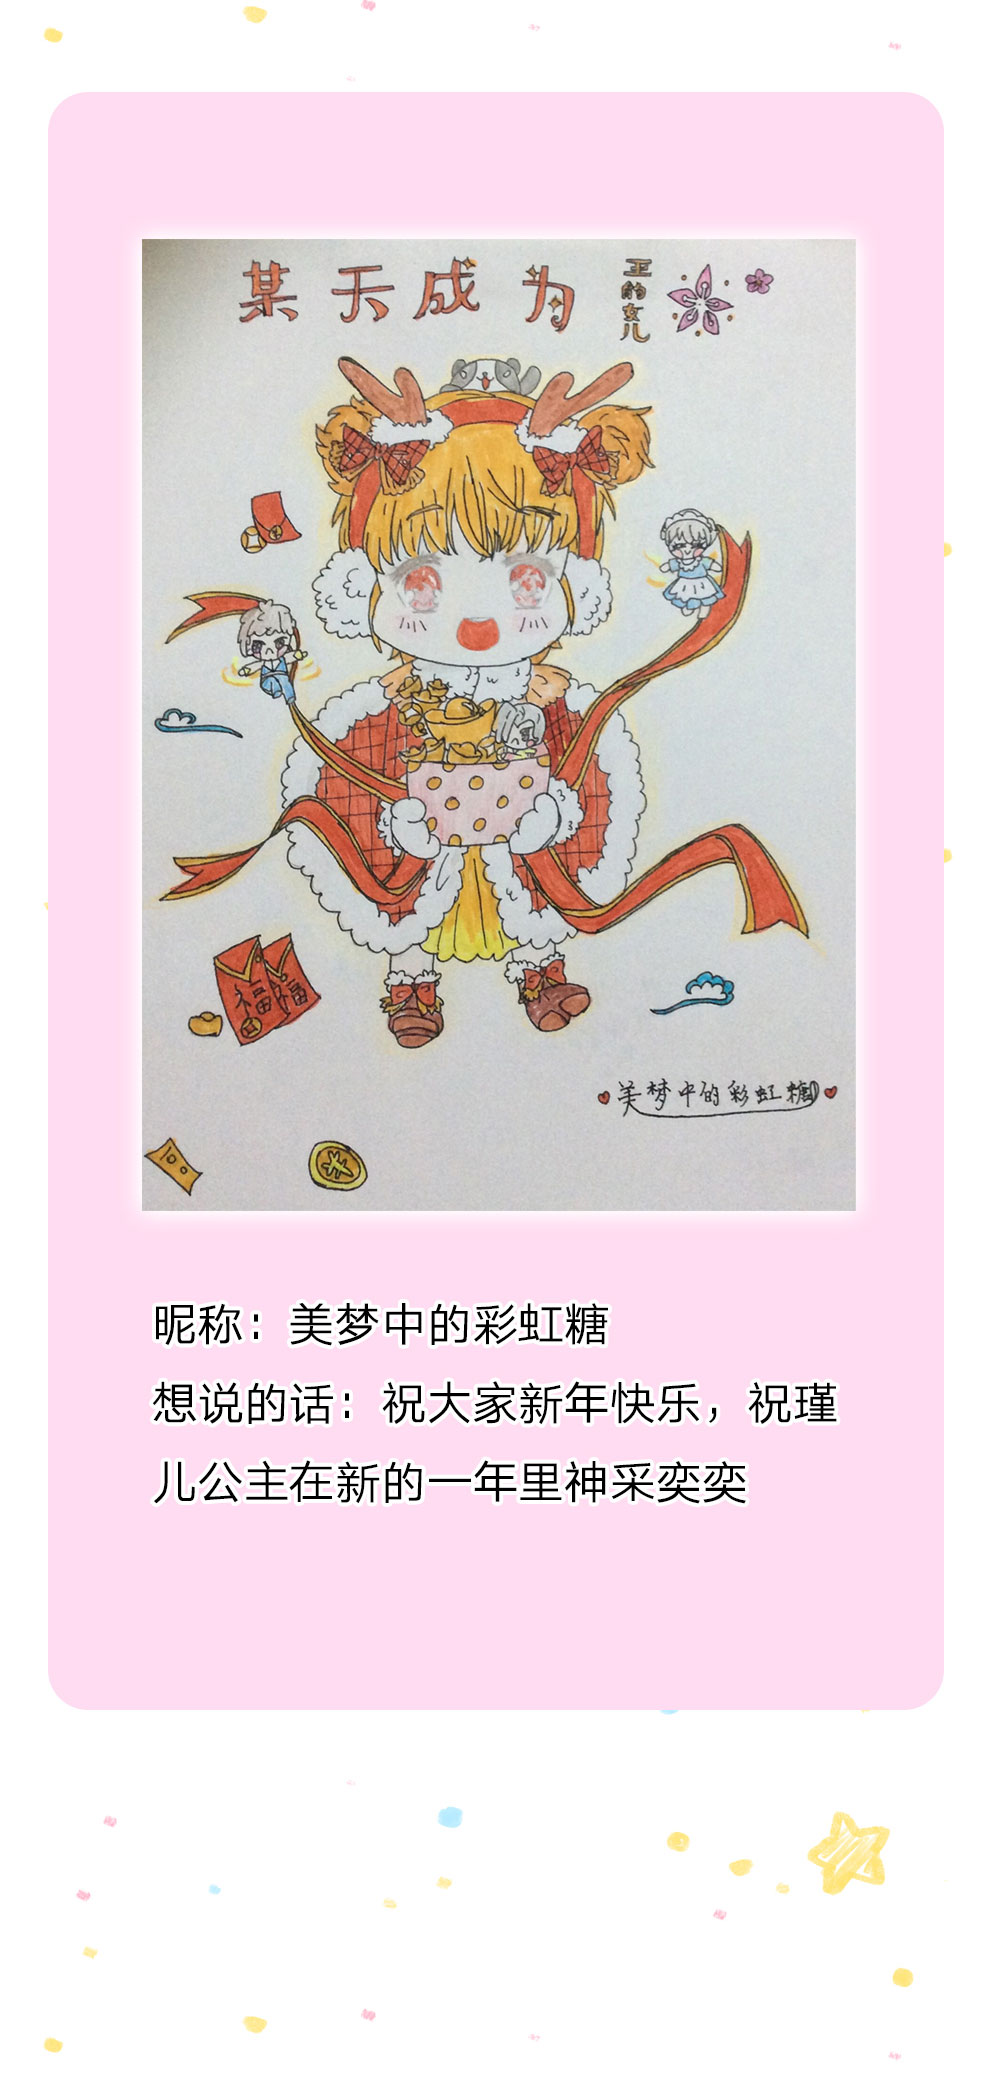 某天成为
王的女儿
福 福
美梦中的彩虹糖
100
昵称：美梦中的彩虹糖
想说的话：祝大家新年快乐，祝瑾
儿公主在新的一年里神采奕奕